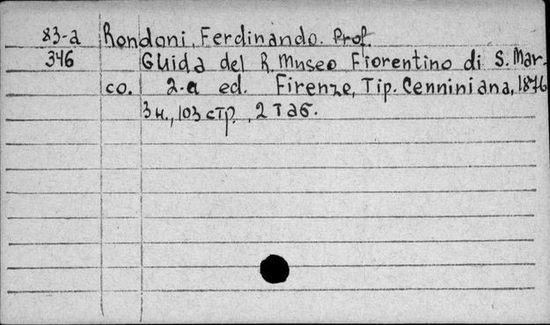 83-a Rondoni, Ferdinando. Prof.
346 Guida del R. Museo Fiorentino di S. Mar-
co. 2.a ed. Firenze, Tip. Cenniniana, 1876
3 н., 103 стр., 2 таб.